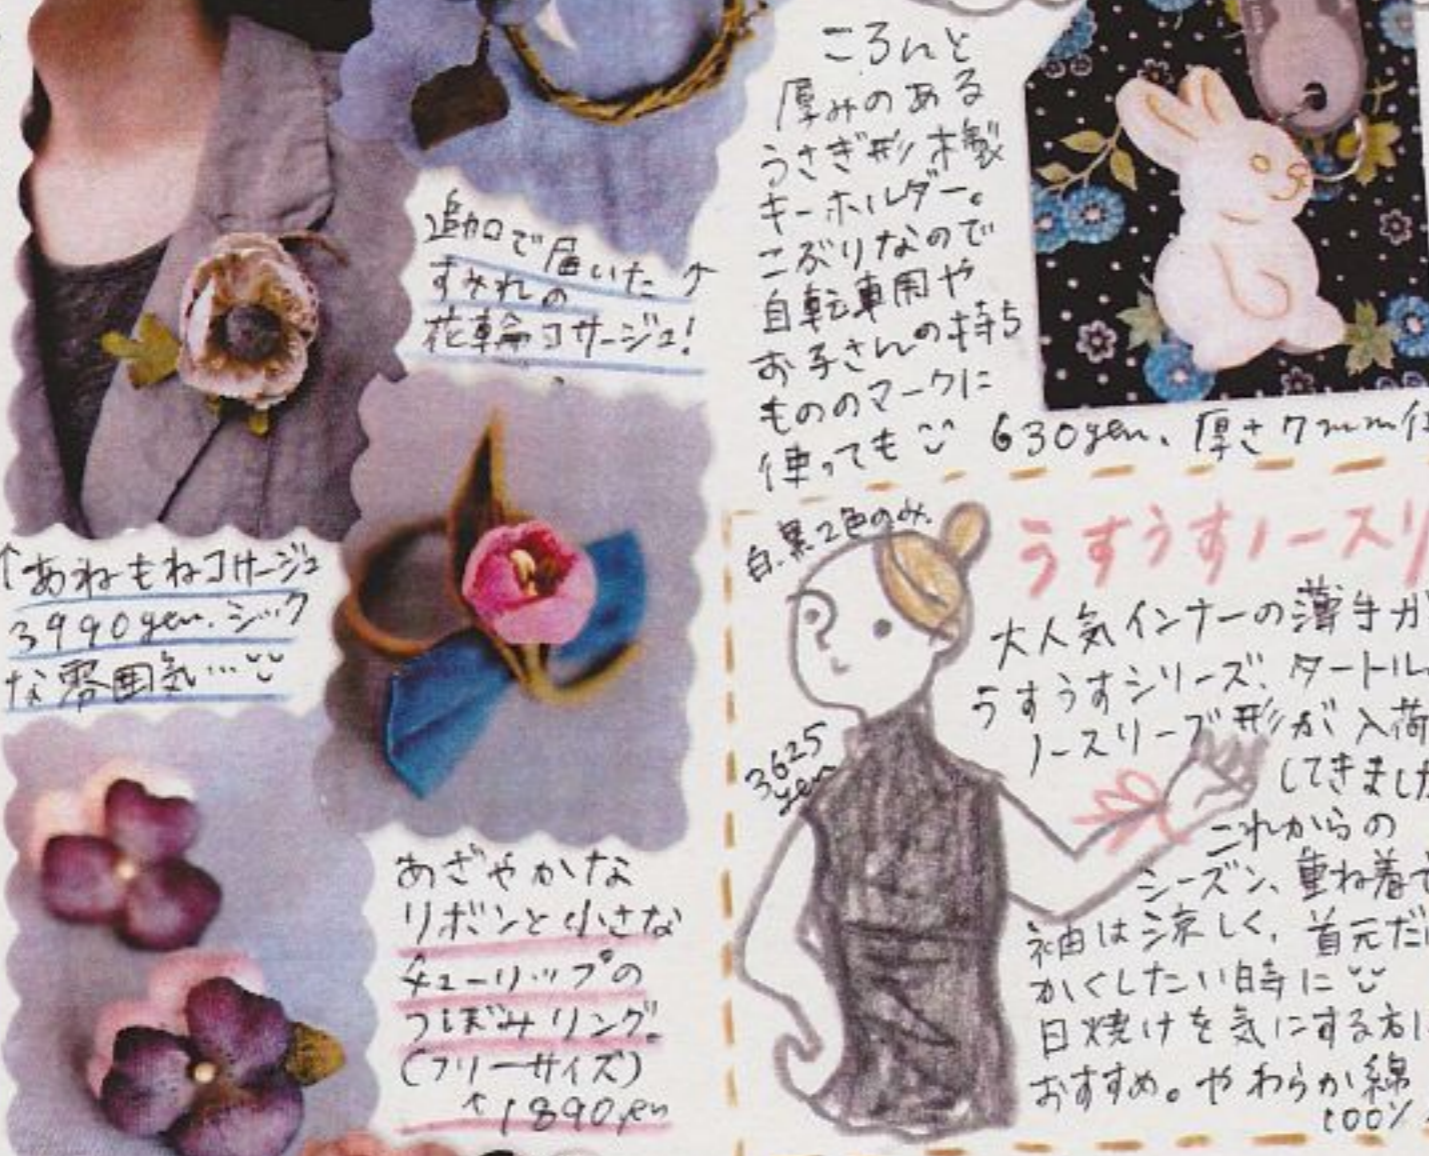 追加で届いた↗
すみれの
花輪コサージュ!
↑あねもねコサージュ
3990yen.シック
な雰囲気…
あざやかな
リボンと小さな
チューリップの
つぼみリング。
(フリーサイズ)
↑1890yen
ころんと
厚みのある
うさぎ形木製
キーホルダー。
こぶりなので
自転車用や
お子さんの持ち
もののマークに
使っても
630yen、厚さ7mm
白.黒2色のみ.
3625
yen
うすうすノースリ
大人気インナーの薄手
うすうすシリーズ、タートル
ノースリーブ形が入荷
してきました
これからの
シーズン、重ね着で
袖は涼しく、首元だ
かくしたい時に
日焼けを気にする方に
おすすめ。やわらか綿
100%